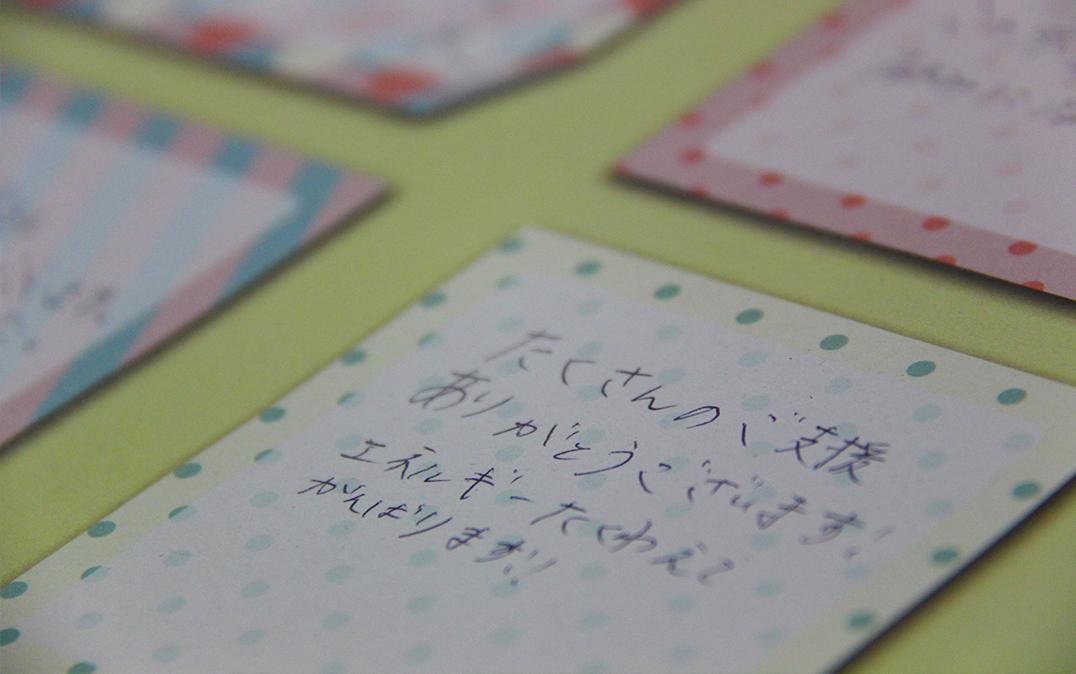 たくさんのご支援
ありがとうございます!
エネルギーたくわえて
がんばります!!